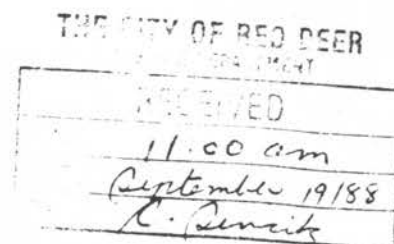 THE CITY OF RED DEER
RECEIVED
11.00 am
September 19/88
C.